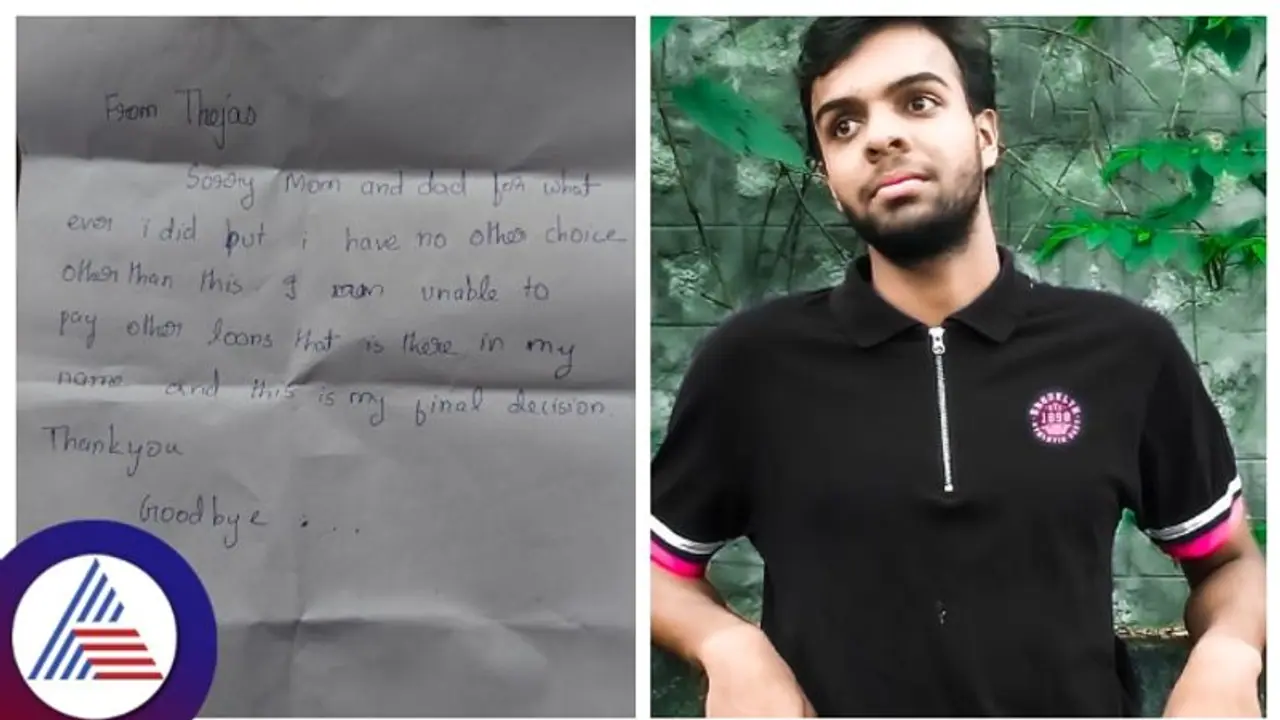 From Thejas
Sorry Mom and dad for what
ever i did but i have no other choice
other than this I am unable to
pay other loans that is there in my
name and this is my final decision.
Thankyou
Goodbye . . .
BROOKLYN
1890